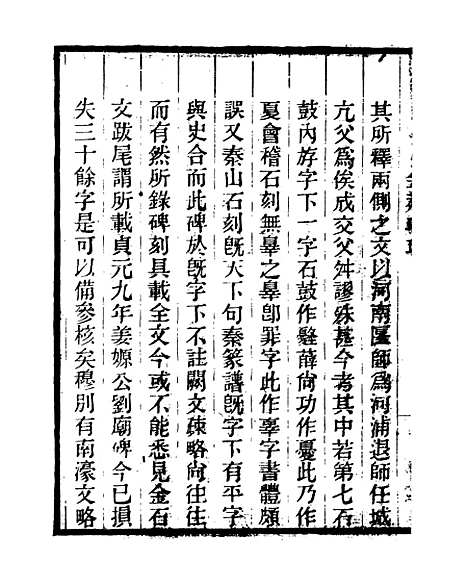 其所釋兩側之文以河南匽師爲河浦退師任城
亢父爲俟成交父舛謬殊甚今考其中若第七石
鼓內斿字下一字石鼓作
薛尙功作
此乃作
夏會稽石刻無辠之辠卽罪字此作辜字書體頗
誤又泰山石刻旣天下句秦篆譜旣字下有平字
與史合而此碑於旣字下不註闕文疎略尙往往
而有然所錄碑刻具載全文今或不能悉見金石
文跋尾謂所載貞元九年姜嫄公劉廟碑今已損
失三十餘字是可以備參核矣穆別有南濠文略